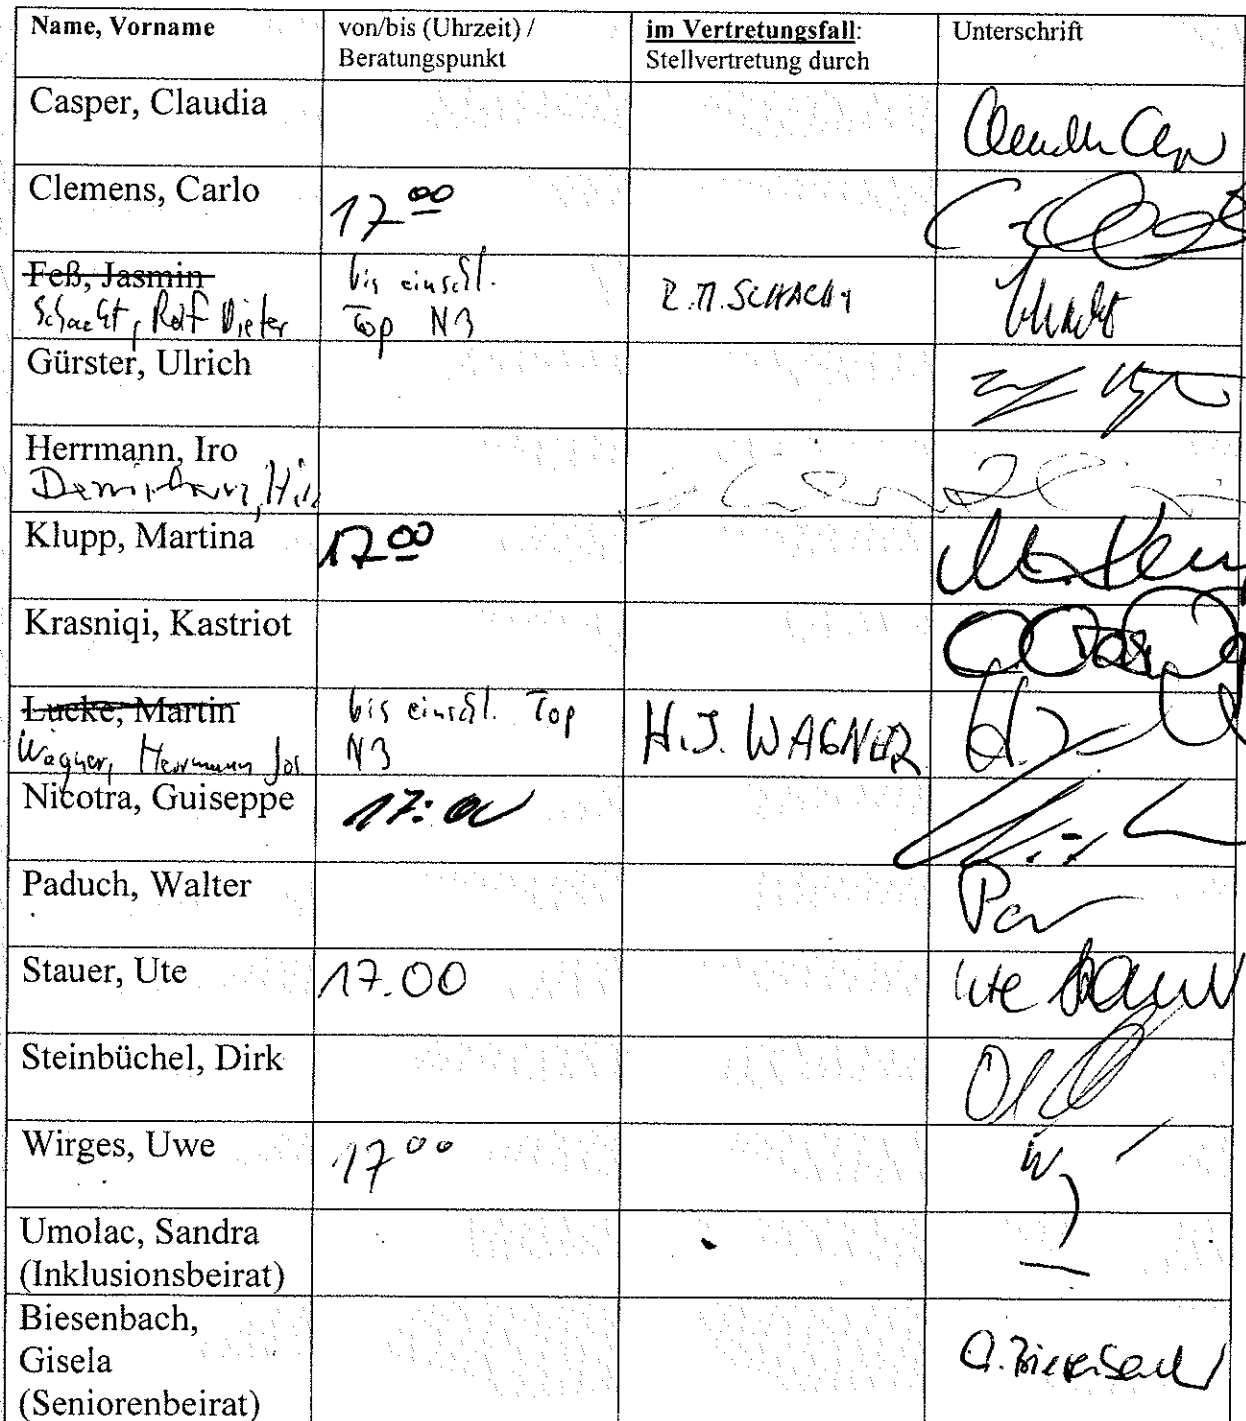 Name, Vorname
von/bis (Uhrzeit) /
Beratungspunkt
im Vertretungsfall:
Stellvertretung durch
Unterschrift
Casper, Claudia
Clemens, Carlo
17 00
Feß, Jasmin
Schacht, Rolf Dieter
bis einschl.
Top N3
Gürster, Ulrich
Herrmann, Iro
Klupp, Martina
17 00
Krasniqi, Kastriot
Lucke, Martin
Wagner, Herrmann Jos
bis einschl. Top
N3
H.J. WAGNER
Nicotra, Guiseppe
Paduch, Walter
Stauer, Ute
17.00
Ute
Steinbüchel, Dirk
Wirges, Uwe
17 00
Umolac, Sandra
(Inklusionsbeirat)
—
Biesenbach,
Gisela
(Seniorenbeirat)